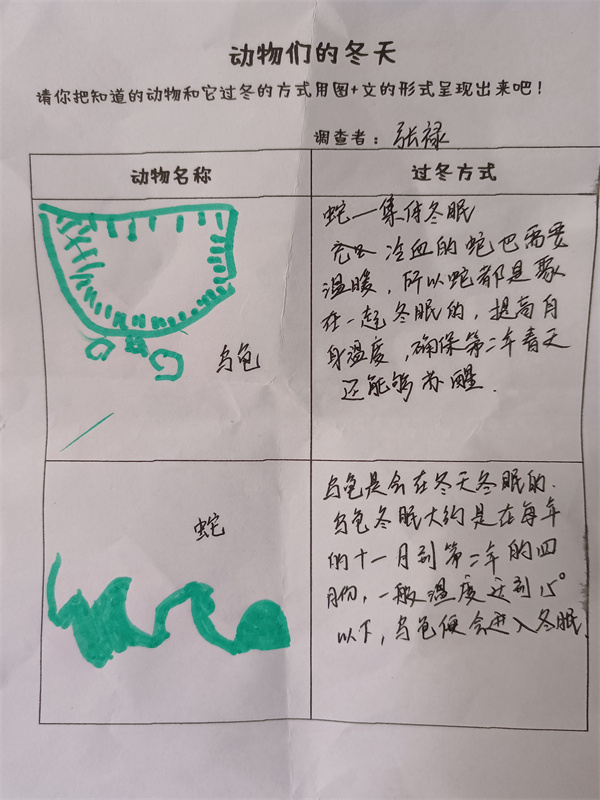 动物们的冬天
请你把知道的动物和它过冬的方式用图+文的形式呈现出来吧！
调查者：张禄
动物名称
过冬方式
乌龟
蛇—集体冬眠
冷血的蛇也需要
温暖，所以蛇都是聚
在一起冬眠的，提高自
身温度，确保第二年春天
还能够苏醒.
蛇
乌龟是会在冬天冬眠的.
乌龟冬眠大约是在每年
的十一月到第二年的四
月份，一般温度达到15°
以下，乌龟便会进入冬眠.